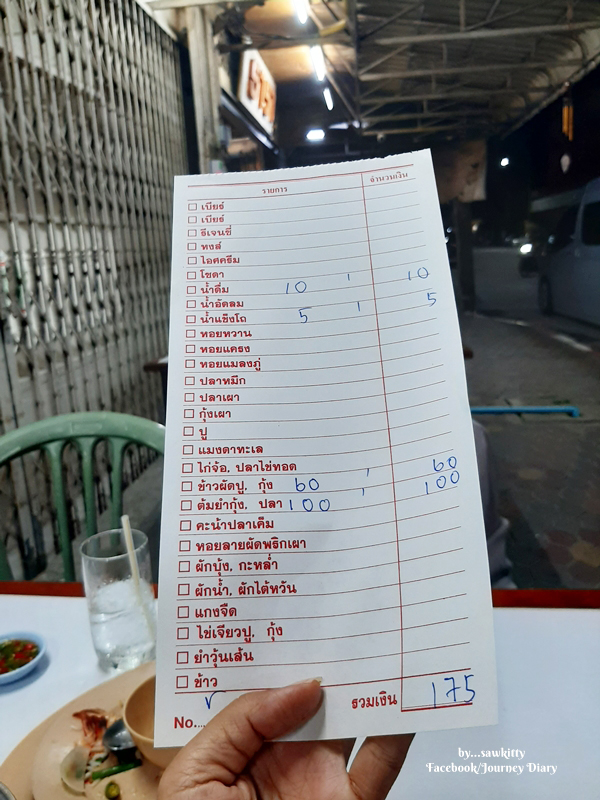 รายการ จำนวนเงิน
เบียร์
เบียร์
รีเจนซี่
หงส์
ไอศครีม
โซดา
น้ำดื่ม 10 1 10
น้ำอัดลม
น้ำแข็งโถ 5 1 5
หอยหวาน
หอยแครง
หอยแมลงภู่
ปลาหมึก
ปลาเผา
กุ้งเผา
ปู
แมงดาทะเล
ไก่จ้อ, ปลาไข่ทอด
ข้าวผัดปู, กุ้ง 60 1 60
ต้มยำกุ้ง, ปลา 100 1 100
คะน้าปลาเค็ม
หอยลายผัดพริกเผา
ผักบุ้ง, กะหล่ำ
ผักน้ำ, ผักไต้หวัน
แกงจืด
ไข่เจียวปู, กุ้ง
ยำวุ้นเส้น
ข้าว
No.... รวมเงิน 175
by...sawkitty
Facebook/Journey Diary